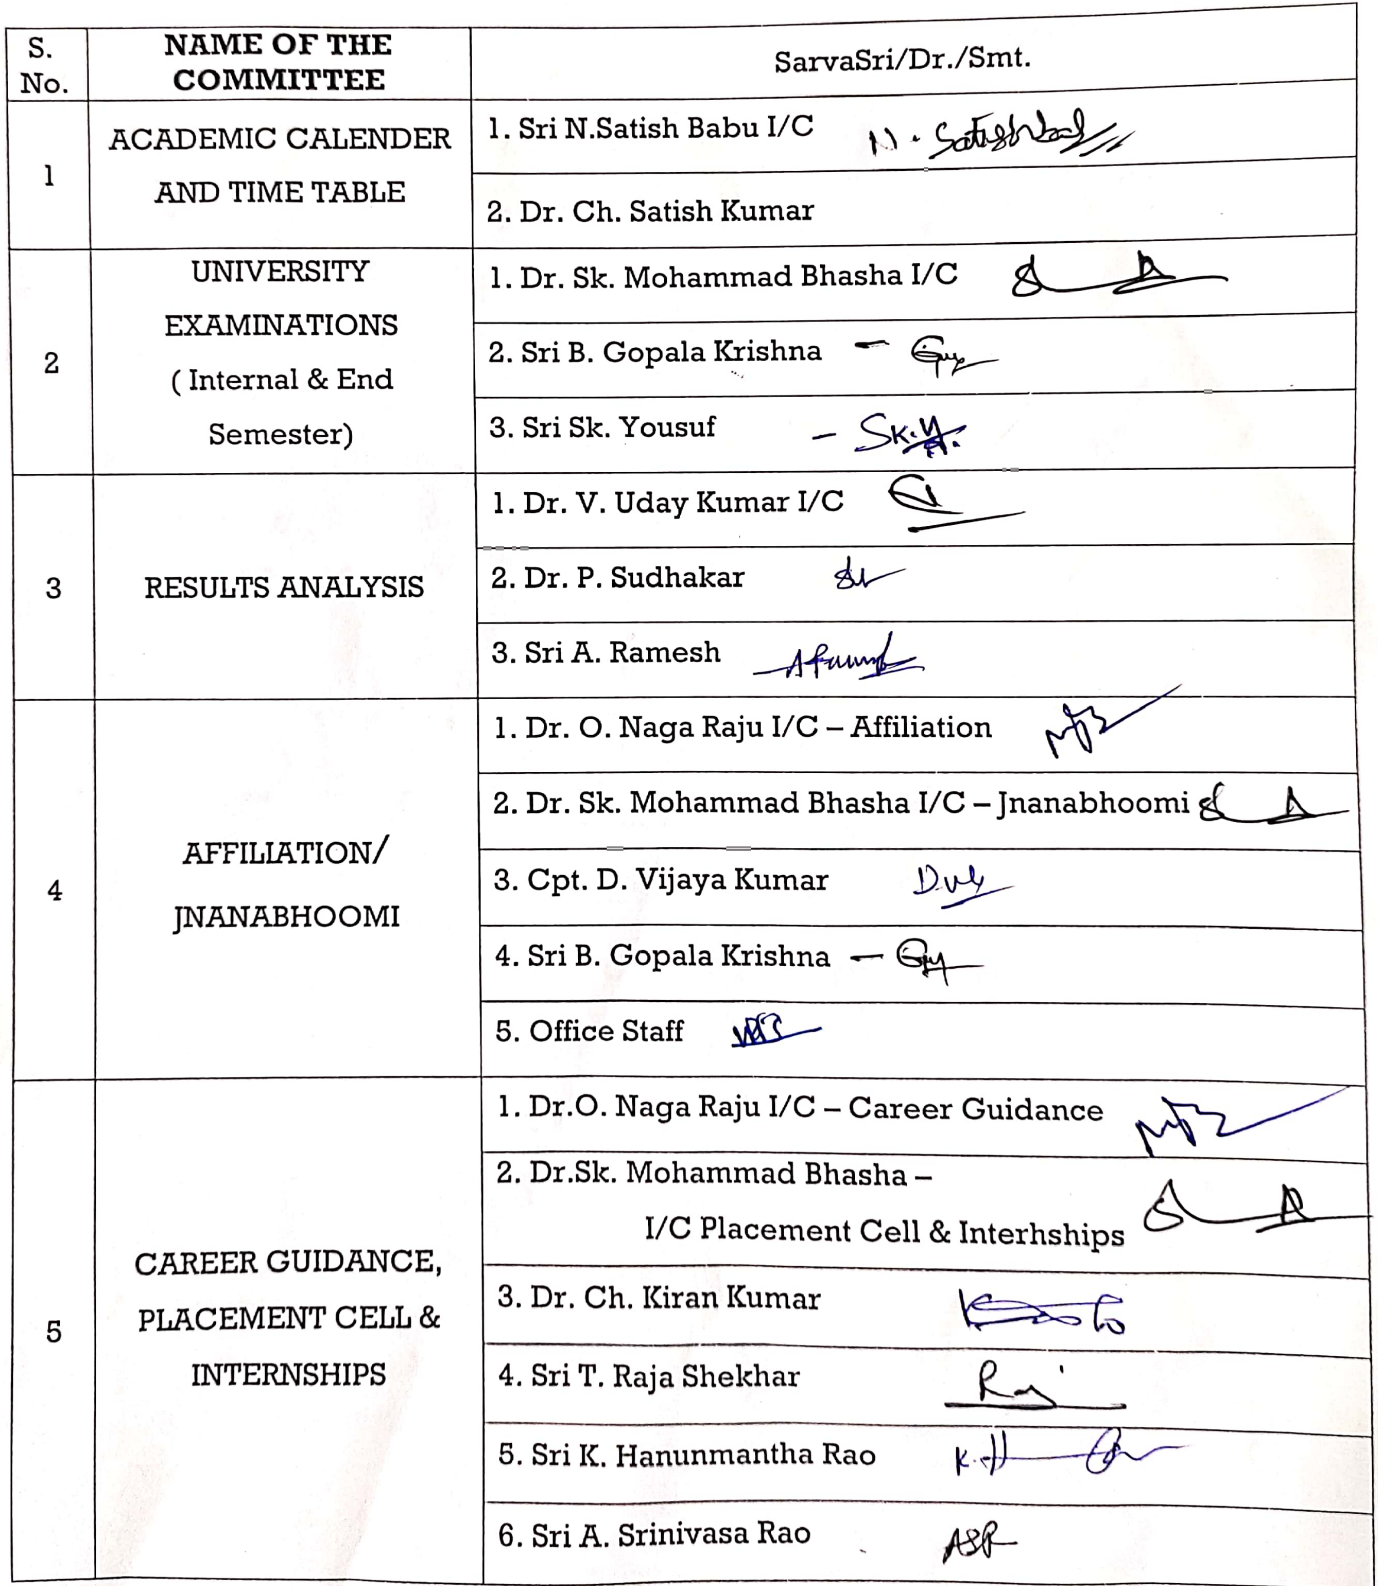 S. No.
NAME OF THE COMMITTEE
SarvaSri/Dr./Smt.
1
ACADEMIC CALENDER
AND TIME TABLE
1. Sri N.Satish Babu I/C N. Satishbabu
2. Dr. Ch. Satish Kumar
2
UNIVERSITY
EXAMINATIONS
( Internal & End
Semester)
1. Dr. Sk. Mohammad Bhasha I/C
2. Sri B. Gopala Krishna –
3. Sri Sk. Yousuf – Sk.Y.
3
RESULTS ANALYSIS
1. Dr. V. Uday Kumar I/C
2. Dr. P. Sudhakar
3. Sri A. Ramesh
4
AFFILIATION/
JNANABHOOMI
1. Dr. O. Naga Raju I/C – Affiliation
2. Dr. Sk. Mohammad Bhasha I/C – Jnanabhoomi
3. Cpt. D. Vijaya Kumar
4. Sri B. Gopala Krishna –
5. Office Staff
5
CAREER GUIDANCE,
PLACEMENT CELL &
INTERNSHIPS
1. Dr.O. Naga Raju I/C – Career Guidance
2. Dr.Sk. Mohammad Bhasha –
I/C Placement Cell & Interhships
3. Dr. Ch. Kiran Kumar
4. Sri T. Raja Shekhar Raj
5. Sri K. Hanunmantha Rao
6. Sri A. Srinivasa Rao ASR